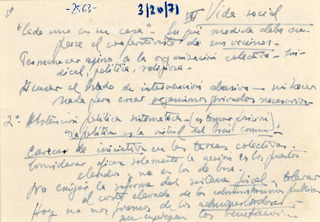 1º -2563- 3/20/71
III Vida social
"Cada uno en su casa" - En qué medida debo
el de sus vecinos.
Permanecer ajeno a la organización colectiva - Sin-
dical, política, religiosa.
el Estado de intervención abusiva - no hacer
nada para crear organismos privados necesarios
2º Abstención política sistemática -
la política es la virtud del bien común
Carecer de iniciativa en las tareas colectivas.
Considerar eficaz solamente la acción en los puestos
elevados y no en los de base.
No exigir la reforma del sistema fiscal. tolerar
el coste elevado de la administración pública
Hoy no nos podemos de los administradores